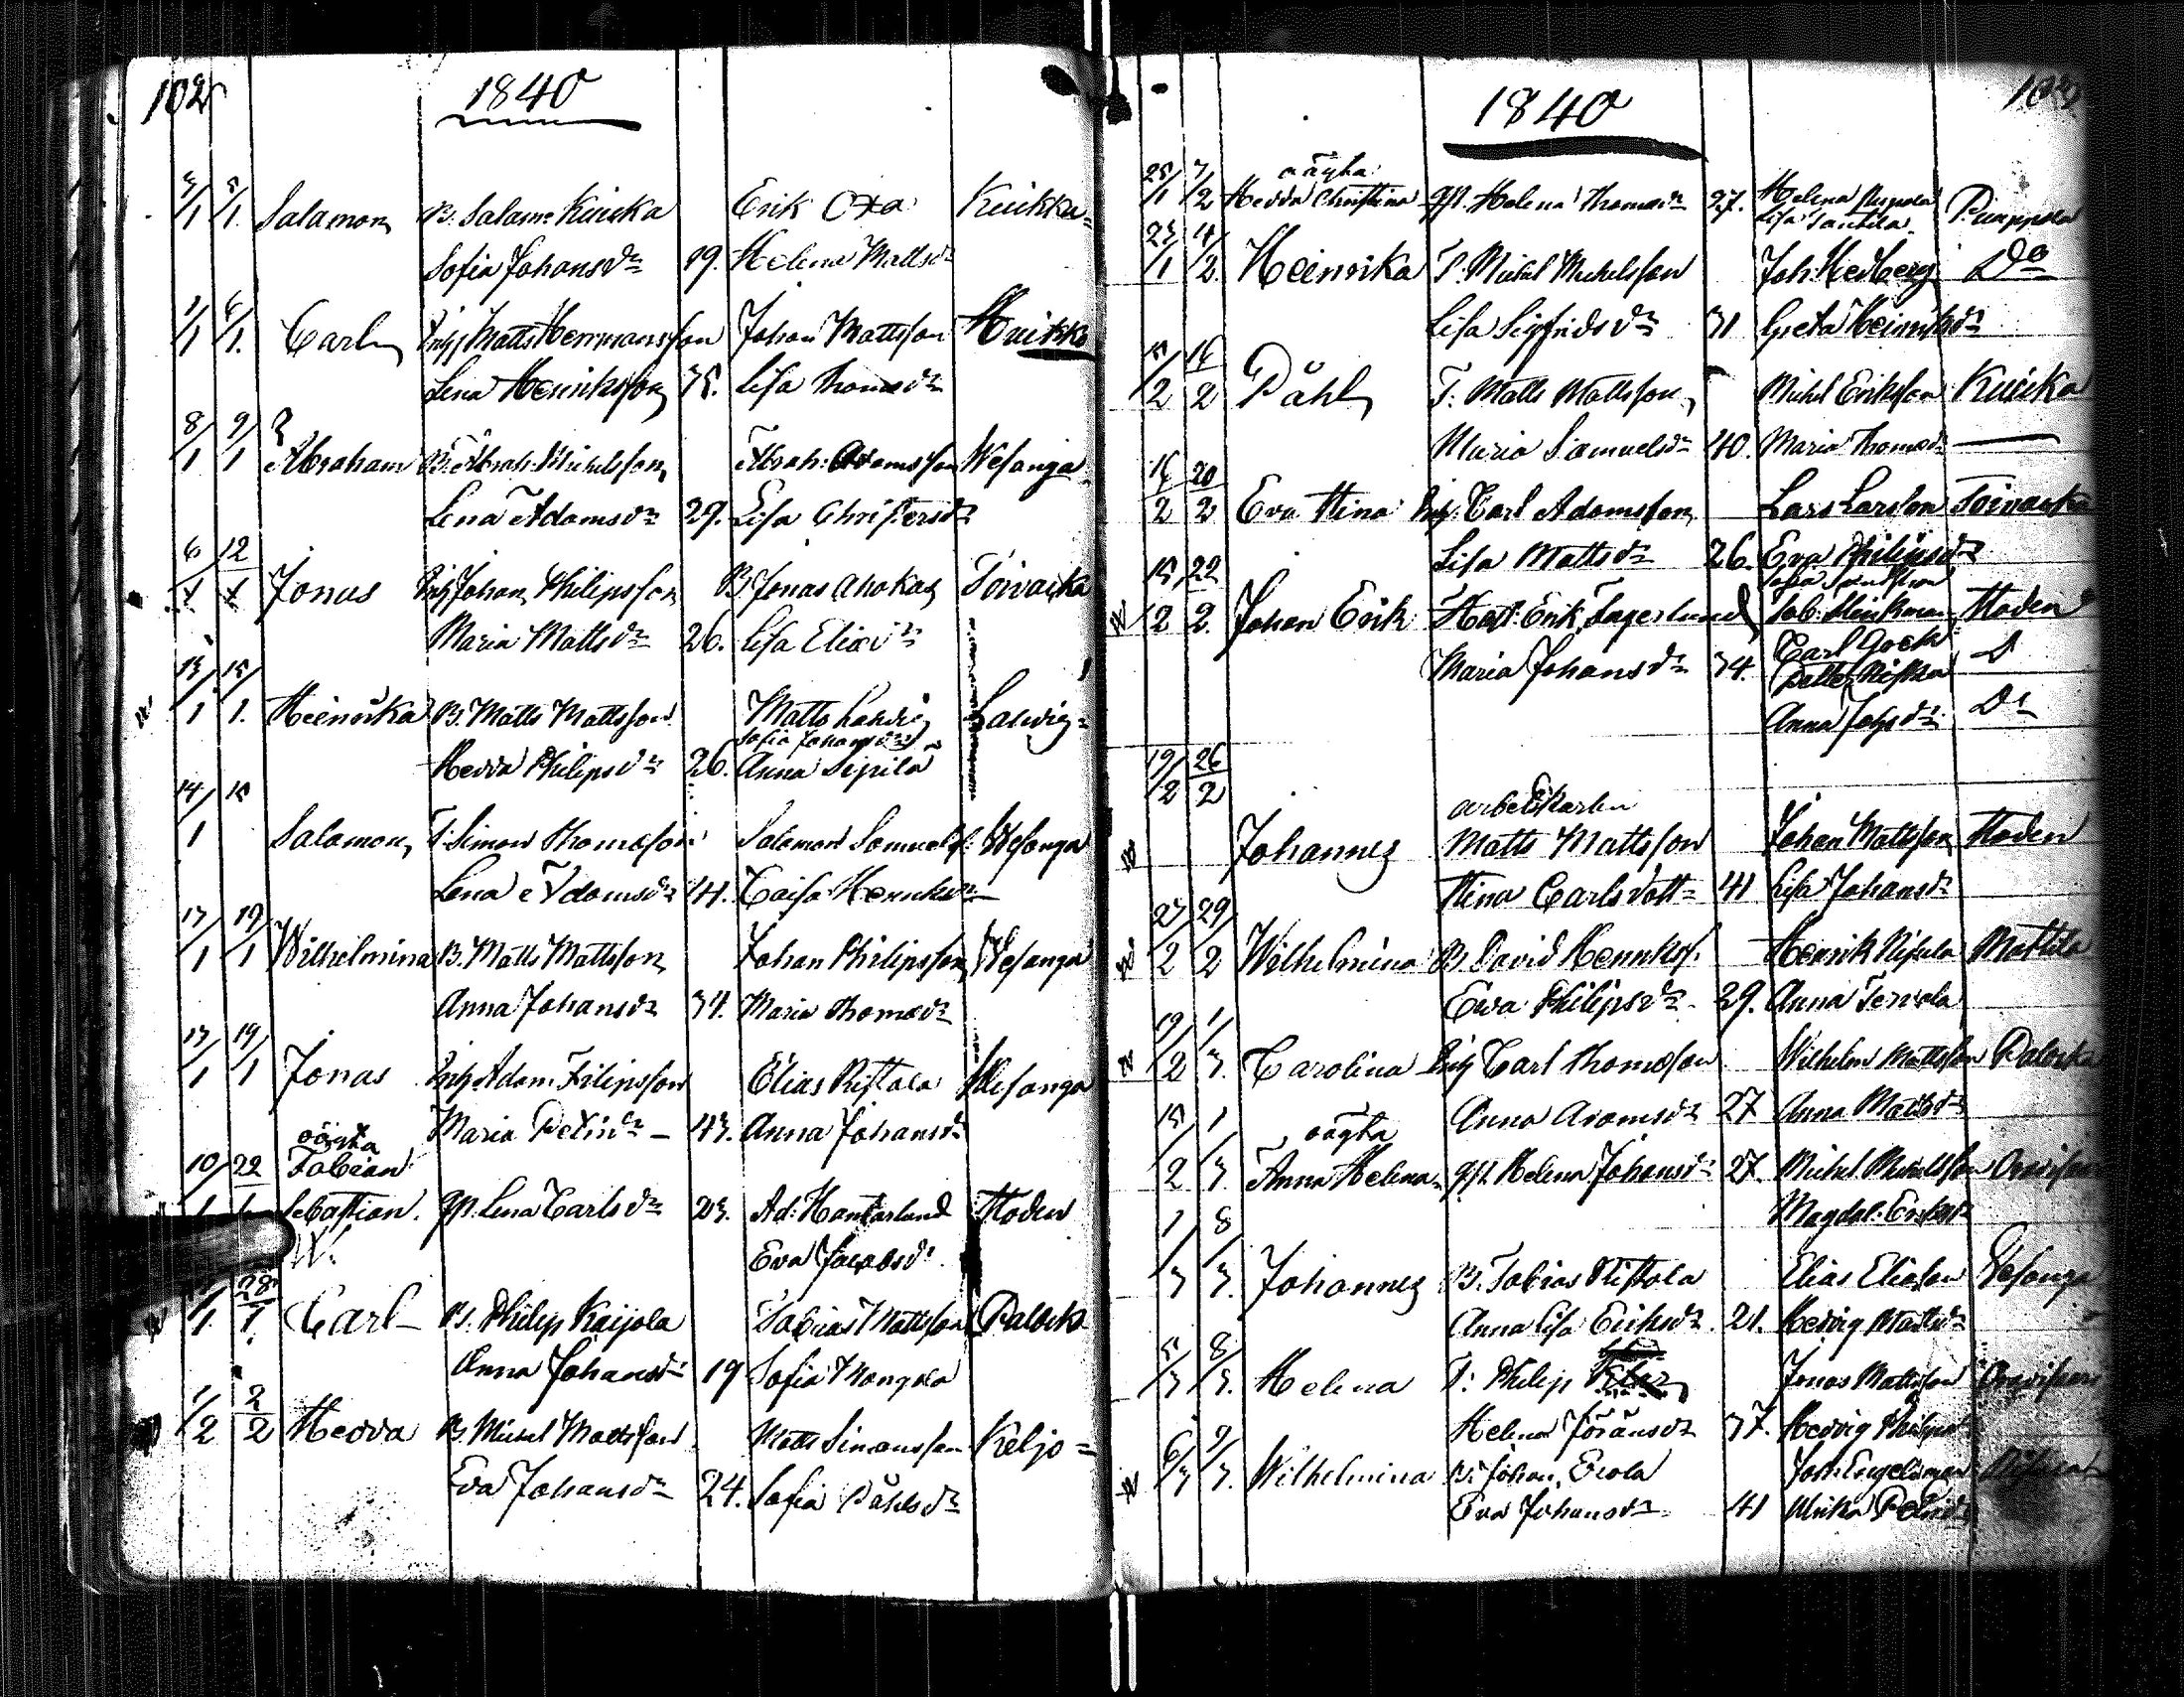 102
1840
3/1 5/1 Salamon B. Salam: Kuicka Erik Oxa Kuikka
Sofia Johansdr 19. Helena Mattsdr
1/1 6/1 Carl Inhs Matts Hermansson Johan Mattsson Kuikka
Lena Henriksson 35. Lisa Thomasdr
8/1 9/1 Abraham B. Abrah: Michelsson Abrah: Adamsson Wesanga
Lena Adamsdr 29. Lisa Christersdr
6/1 12/1 Jonas Inhs Johan Philipsson B. Jonas Ahokas Toivacka
Maria Mattsdr 26. Lisa Eliædr
13/1 15/1 Heinrika B. Matts Mattsson Matts Ladvig Ladvig
Sofia Johansdr
Hedda Philipsdr 26. Anna Sipilä
14/1 15 Salamon T: Simon Thomasson Salamon Samuelss: Wesanga
Lena Adamsdr 41. Caisa Henriksdr
17/1 19/1 Wilhelmina B. Matts Mattsson Johan Philipsson Wesanga
Anna Johansdr 34. Maria Thomædr
13/1 19/1 Jonas Inhs Adam Filipsson Elias Ristola Wesanga
Maria Petridr 43. Anna Johansdr
oägta
10/ 22/ Fabian
Sebastian. qp. Lena Carlsdr 23. Ad: Hanterlund Staden
Eva Jacobsdr
28/1 Carl B. Philip Kaijola Tobias Mattsson Palocka
Anna Johansdr 19 Sofia Mongola
1/2 2/2 Hedda B. Michel Mattsson Matts Simonsson Keljo
Eva Johansdr 24. Sofia Påhlsdr
1840
oägta
25/1 7/2 Hedda Christina qp. Helena Thomædr 27. Helena Puppola Puuppola
Lisa Santila
23/1 4/2 Heinrika T. Michel Michelsson Joh: Hedberg Do
Lisa Sigfridsdr 31 Greta Heinriksdr
15/2 16/2 Påhl T. Matts Mattsson Michel Eriksson Kuicka
Maria Samuelsdr 40. Maria Thomædr
16/2 20/2 Eva Stina Inhs: Carl Adamsson Lars Larsson Toivacka
Lisa Mattsdr 26. Eva Philipsdr
Sofia Sandström
15/2 22/2 Johan Erik Hatt: Erik Fagerlund Staden
Maria Johansdr 34. Carl Gock D
Petter Riska
Anna Johsdr Do
19/2 26/2
arbetskarlen
Johannes Matts Mattsson Johan Mattsson Staden
Stina Carlsdott 41 Lisa Johansdr
27/2 29/2 Wilhelmina B. David Henrikss. Henrik Nisula Mattila
Ewa Philipsdr 29. Anna Tervola
19/2 1/3 Carolina Inhs Carl Thomasson Wilhelm Mattsson Palocka
Anna Adamsdr 27 Anna Mattsdr
oägta
15/2 1/3 Anna Helena qp. Helena Johansdr 27. Michel Michelsson
Magdal: Eriksdr
1/3 8/3 Johannes B. Tobias Ristola Elias Eliasson Wesanga
Anna Lisa Eriksdr. 21. Hedvig Mattsdr
5/3 8/3 Helena T: Philip Jonas Mattsson
Helena Jöransdr 37. Hedvig Philipsdr
6/3 9/3 Wilhelmina B: Johan Erola Joh: Engelsman
Eva Johansdr 41 Ulrika Petridr